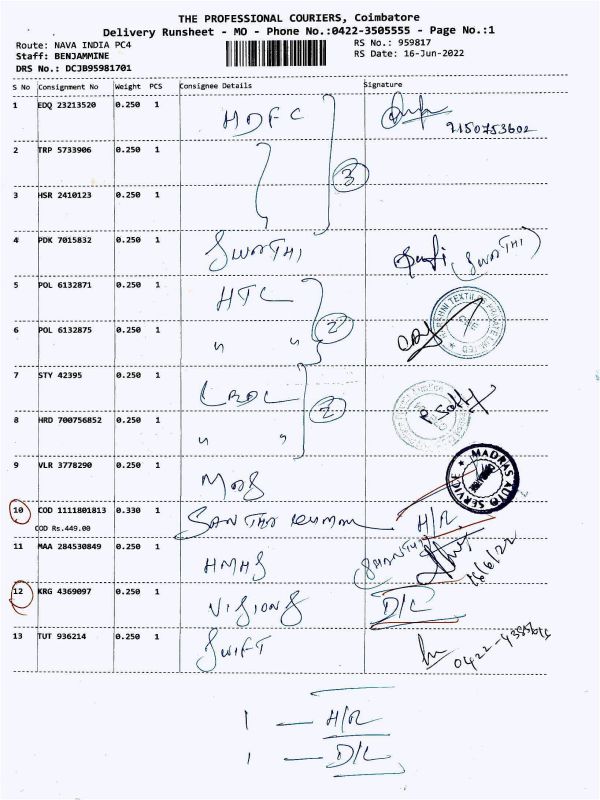 THE PROFESSIONAL COURIERS, Coimbatore
Delivery Runsheet - MO - Phone No.:0422-3505555 - Page No.:1
Route: NAVA INDIA PC4 RS No.: 959817
Staff: BENJAMMINE RS Date: 16-Jun-2022
DRS No.: DCJB95981701
S No Consignment No Weight PCS Consignee Details Signature
1 EDQ 23213520 0.250 1 HDFC
9150753602
2 TRP 5733906 0.250 1
3
3 HSR 2410123 0.250 1
4 PDK 7015832 0.250 1 SWORTHI (SWORTHI)
5 POL 6132871 0.250 1 HTC
6 POL 6132875 0.250 1 " " 2
7 STY 42395 0.250 1
2
8 HRD 700756852 0.250 1 " "
9 VLR 3778290 0.250 1 MADRAS AUTO SERVICE
10 COD 1111801813 0.330 1 H/R
COD Rs.449.00
11 MAA 284530849 0.250 1 HMHS SHANTHI
16/6/22
12 KRG 4369097 0.250 1 VISIONS D/L
13 TUT 936214 0.250 1 SWIFT
1 — H/R
1 — D/L